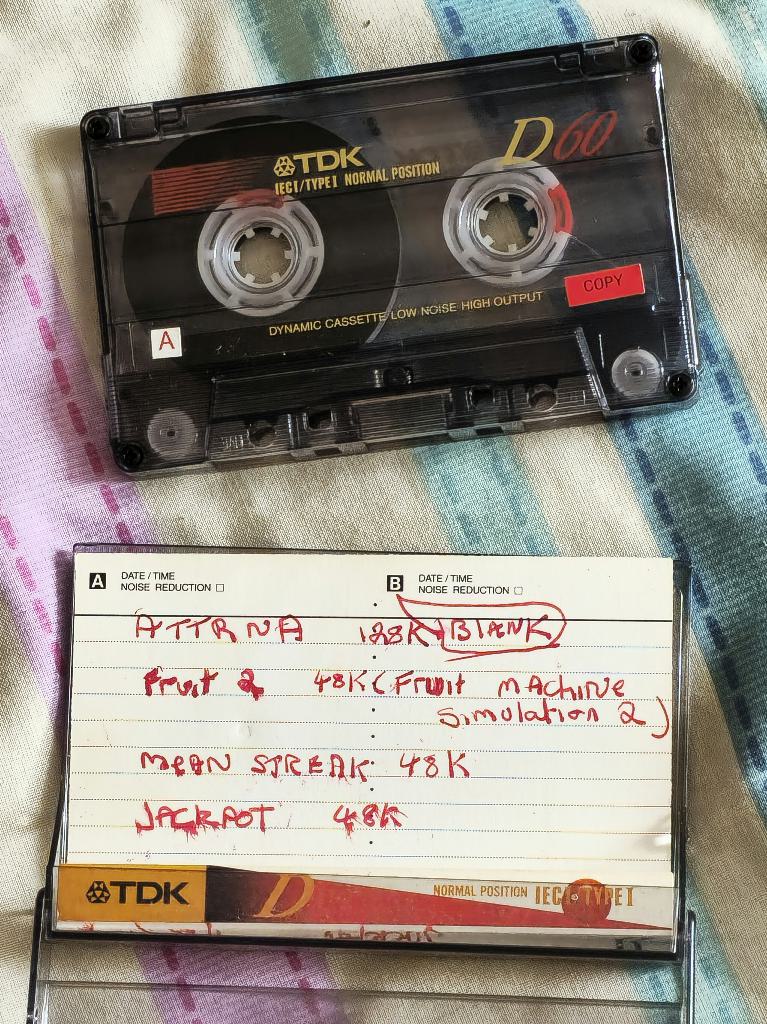 D60
TDK
IEC I/TYPE I NORMAL POSITION
COPY
DYNAMIC CASSETTE LOW NOISE HIGH OUTPUT
A
A DATE/TIME
NOISE REDUCTION
B DATE/TIME
NOISE REDUCTION
ATTRNA 128K BLANK
Fruit 2 48K (Fruit machine
simulation 2)
MEAN STREAK 48K
JACKPOT 48K
TDK D NORMAL POSITION IEC I TYPE I